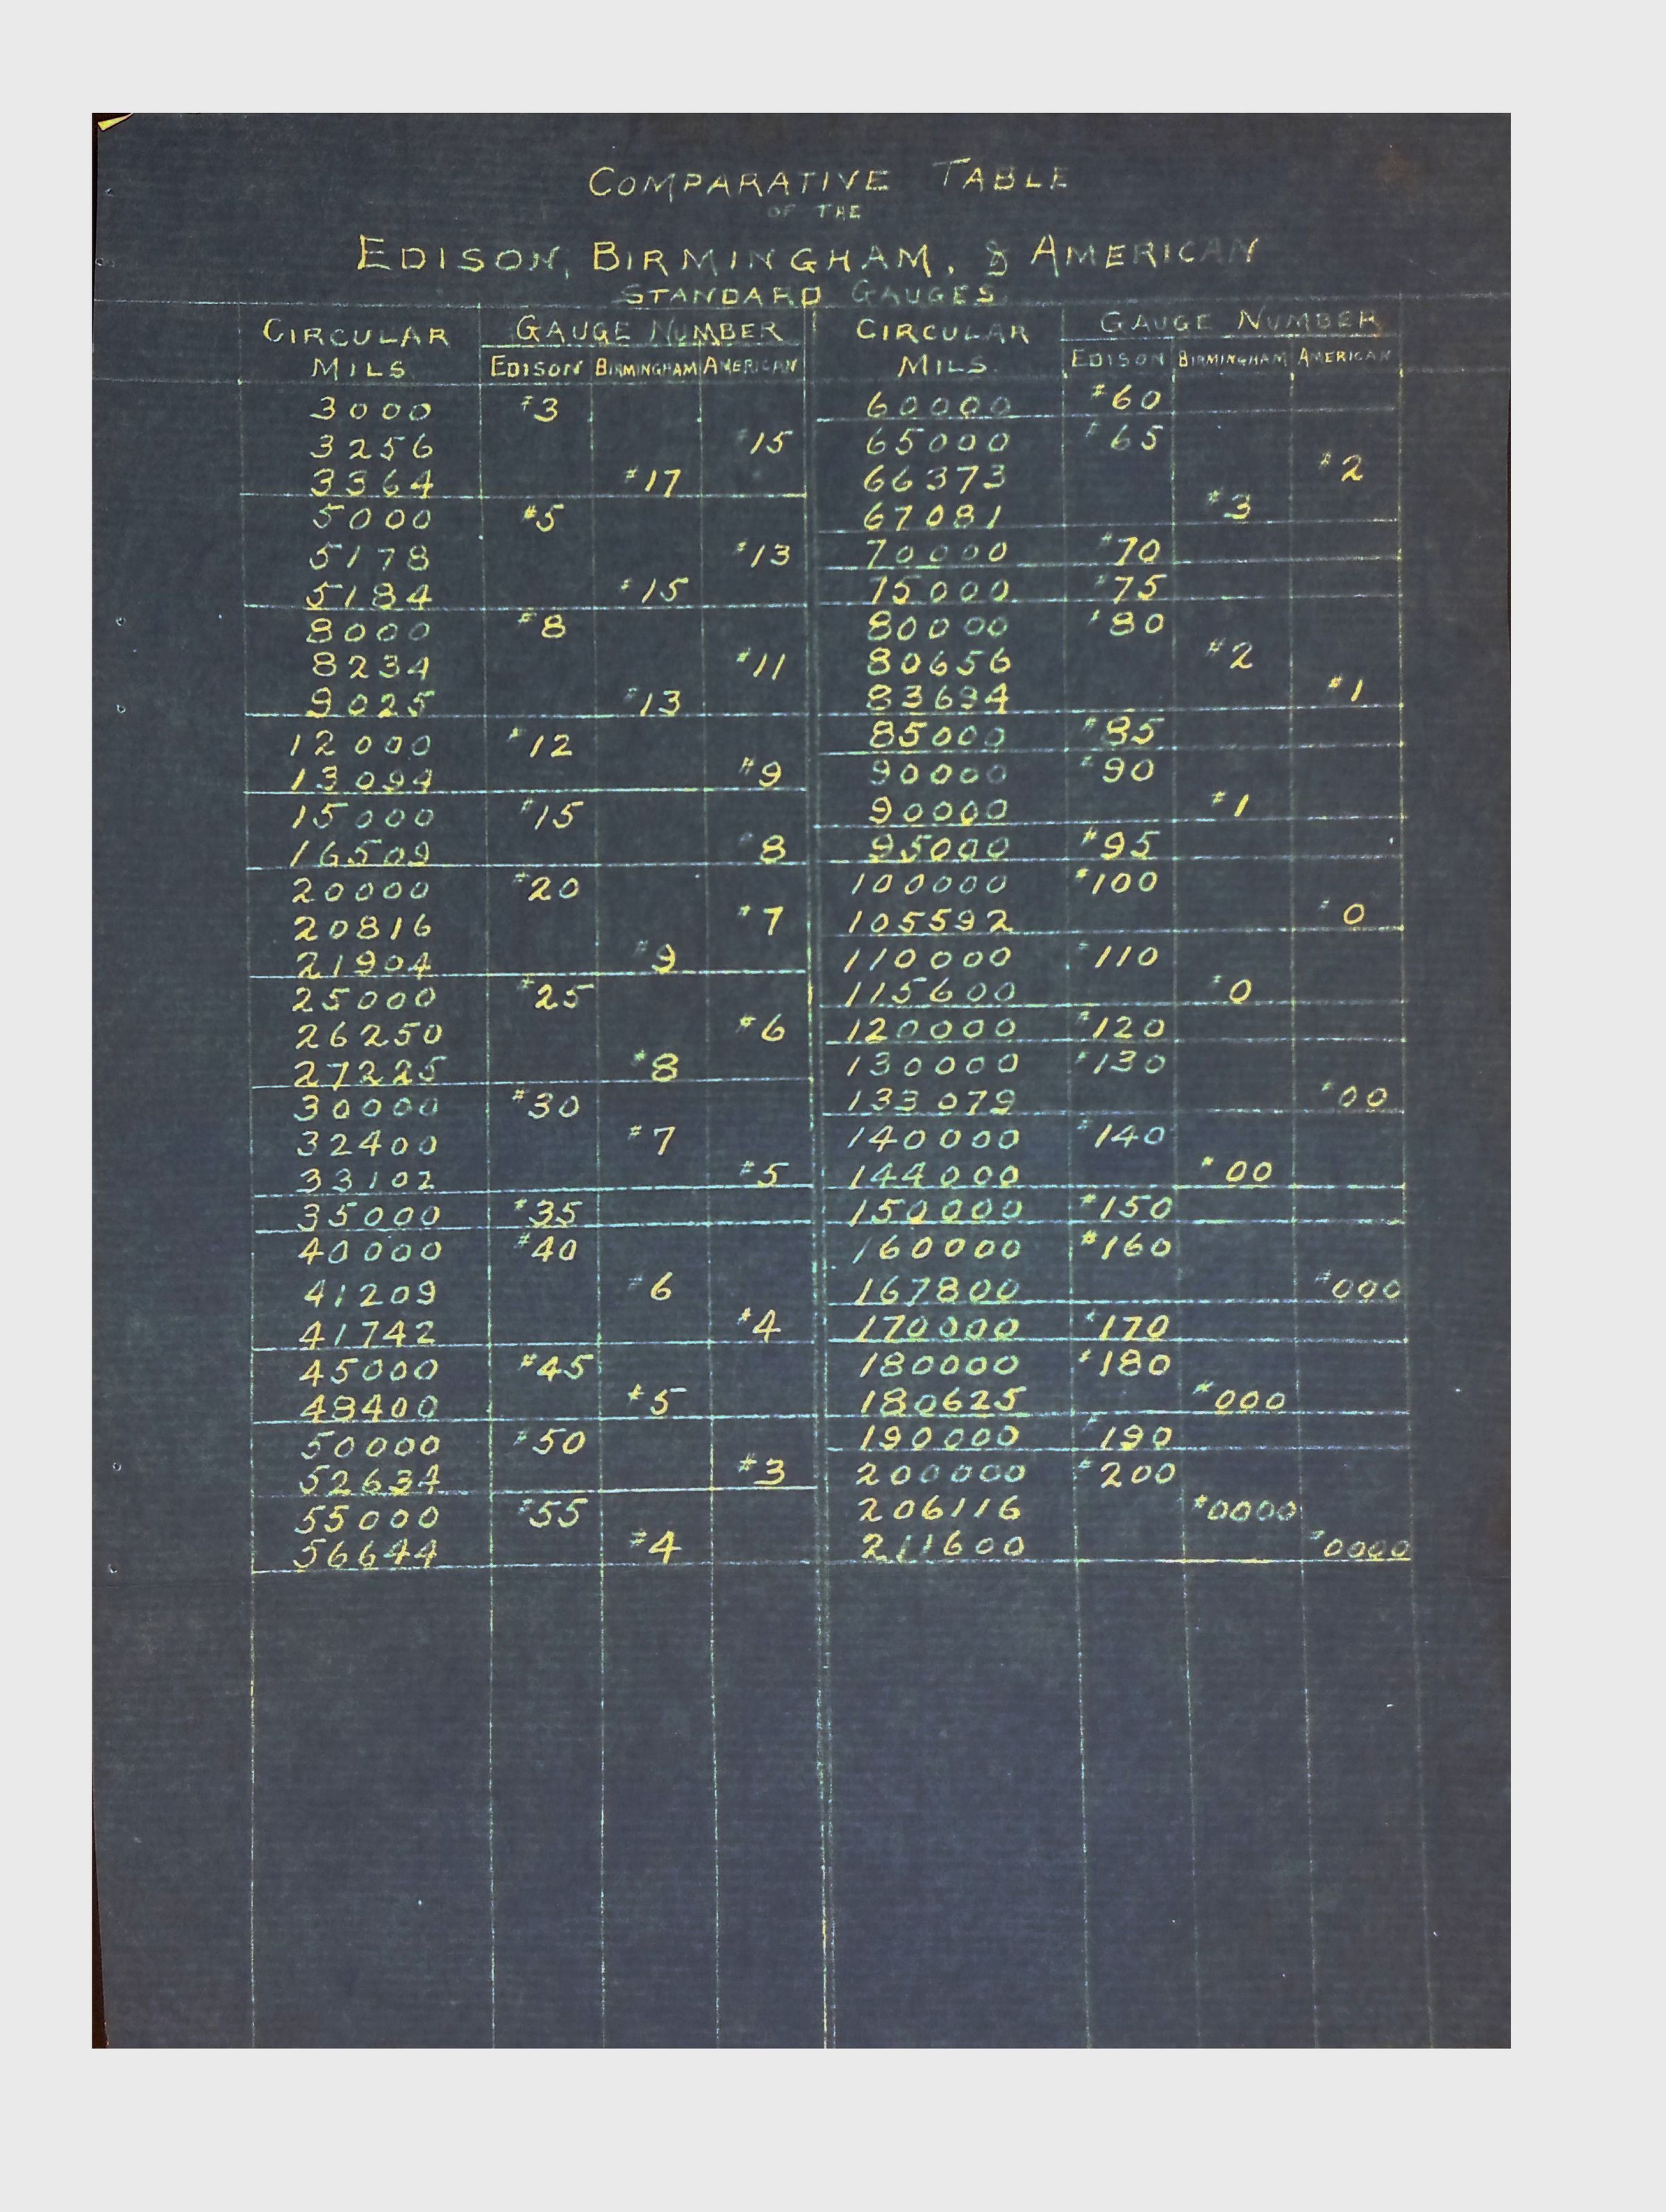 COMPARATIVE TABLE
OF THE
EDISON, BIRMINGHAM, & AMERICAN
STANDARD GAUGES
CIRCULAR MILS GAUGE NUMBER
EDISON BIRMINGHAM AMERICAN
3000 #3
3256 #15
3364 #17
5000 #5
5178 #13
5184 #15
8000 #8
8234 #11
9025 #13
12000 #12
13094 #9
15000 #15
16509 #8
20000 #20
20816 #7
21904 #9
25000 #25
26250 #6
27225 #8
30000 #30
32400 #7
33102 #5
35000 #35
40000 #40
41209 #6
41742 #4
45000 #45
48400 #5
50000 #50
52634 #3
55000 #55
56644 #4
CIRCULAR MILS. GAUGE NUMBER
EDISON BIRMINGHAM AMERICAN
60000 #60
65000 #65
66373 #2
67081 #3
70000 #70
75000 #75
80000 #80
80656 #2
83694 #1
85000 #85
90000 #90
90000 #1
95000 #95
100000 #100
105592 #0
110000 #110
115600 #0
120000 #120
130000 #130
133079 #00
140000 #140
144000 #00
150000 #150
160000 #160
167800 #000
170000 #170
180000 #180
180625 #000
190000 #190
200000 #200
206116 #0000
211600 #0000